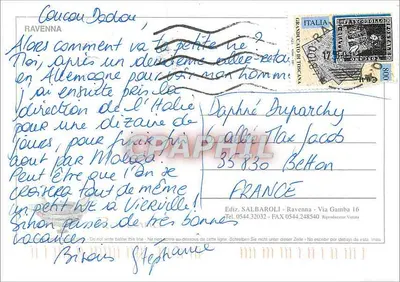 Coucou Dadou!
RAVENNA
Alors comment va la petite vie?
Moi, après un deuxième aller-retour
en Allemagne pour voir mon homme
j'ai ensuite pris la
direction de l'Italie
pour une dizaine de
jours, pour finir
tout par
Peut être que l'on se
croisera tout de même
un petit peu à Vierville!
Sinon passes de très bonnes
vacances.
Bisous Stéphanie
ITALIA
GRANDUCATO DI TOSCANA
Daphné Duparchy
allée Max Jacob
35830 Betton
FRANCE
Ediz. SALBAROLI - Ravenna - Via Gamba 16
Tel. 0544.32032 - FAX 0544.248540
DELPHIL